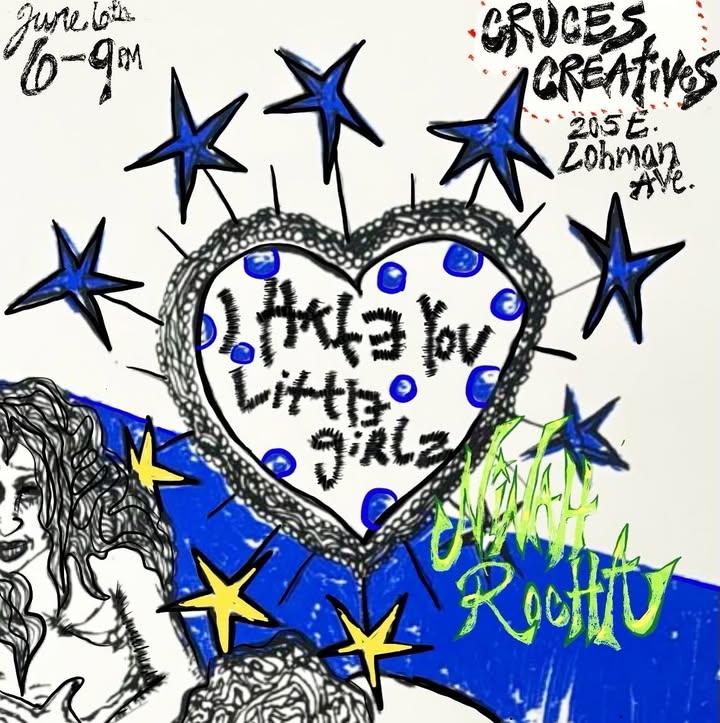 June 6th
6-9PM
CRUCES
CREATIVES
205 E.
Lohman
Ave.
I HATE YOU
Little
girlz
NINAH
ROCHA